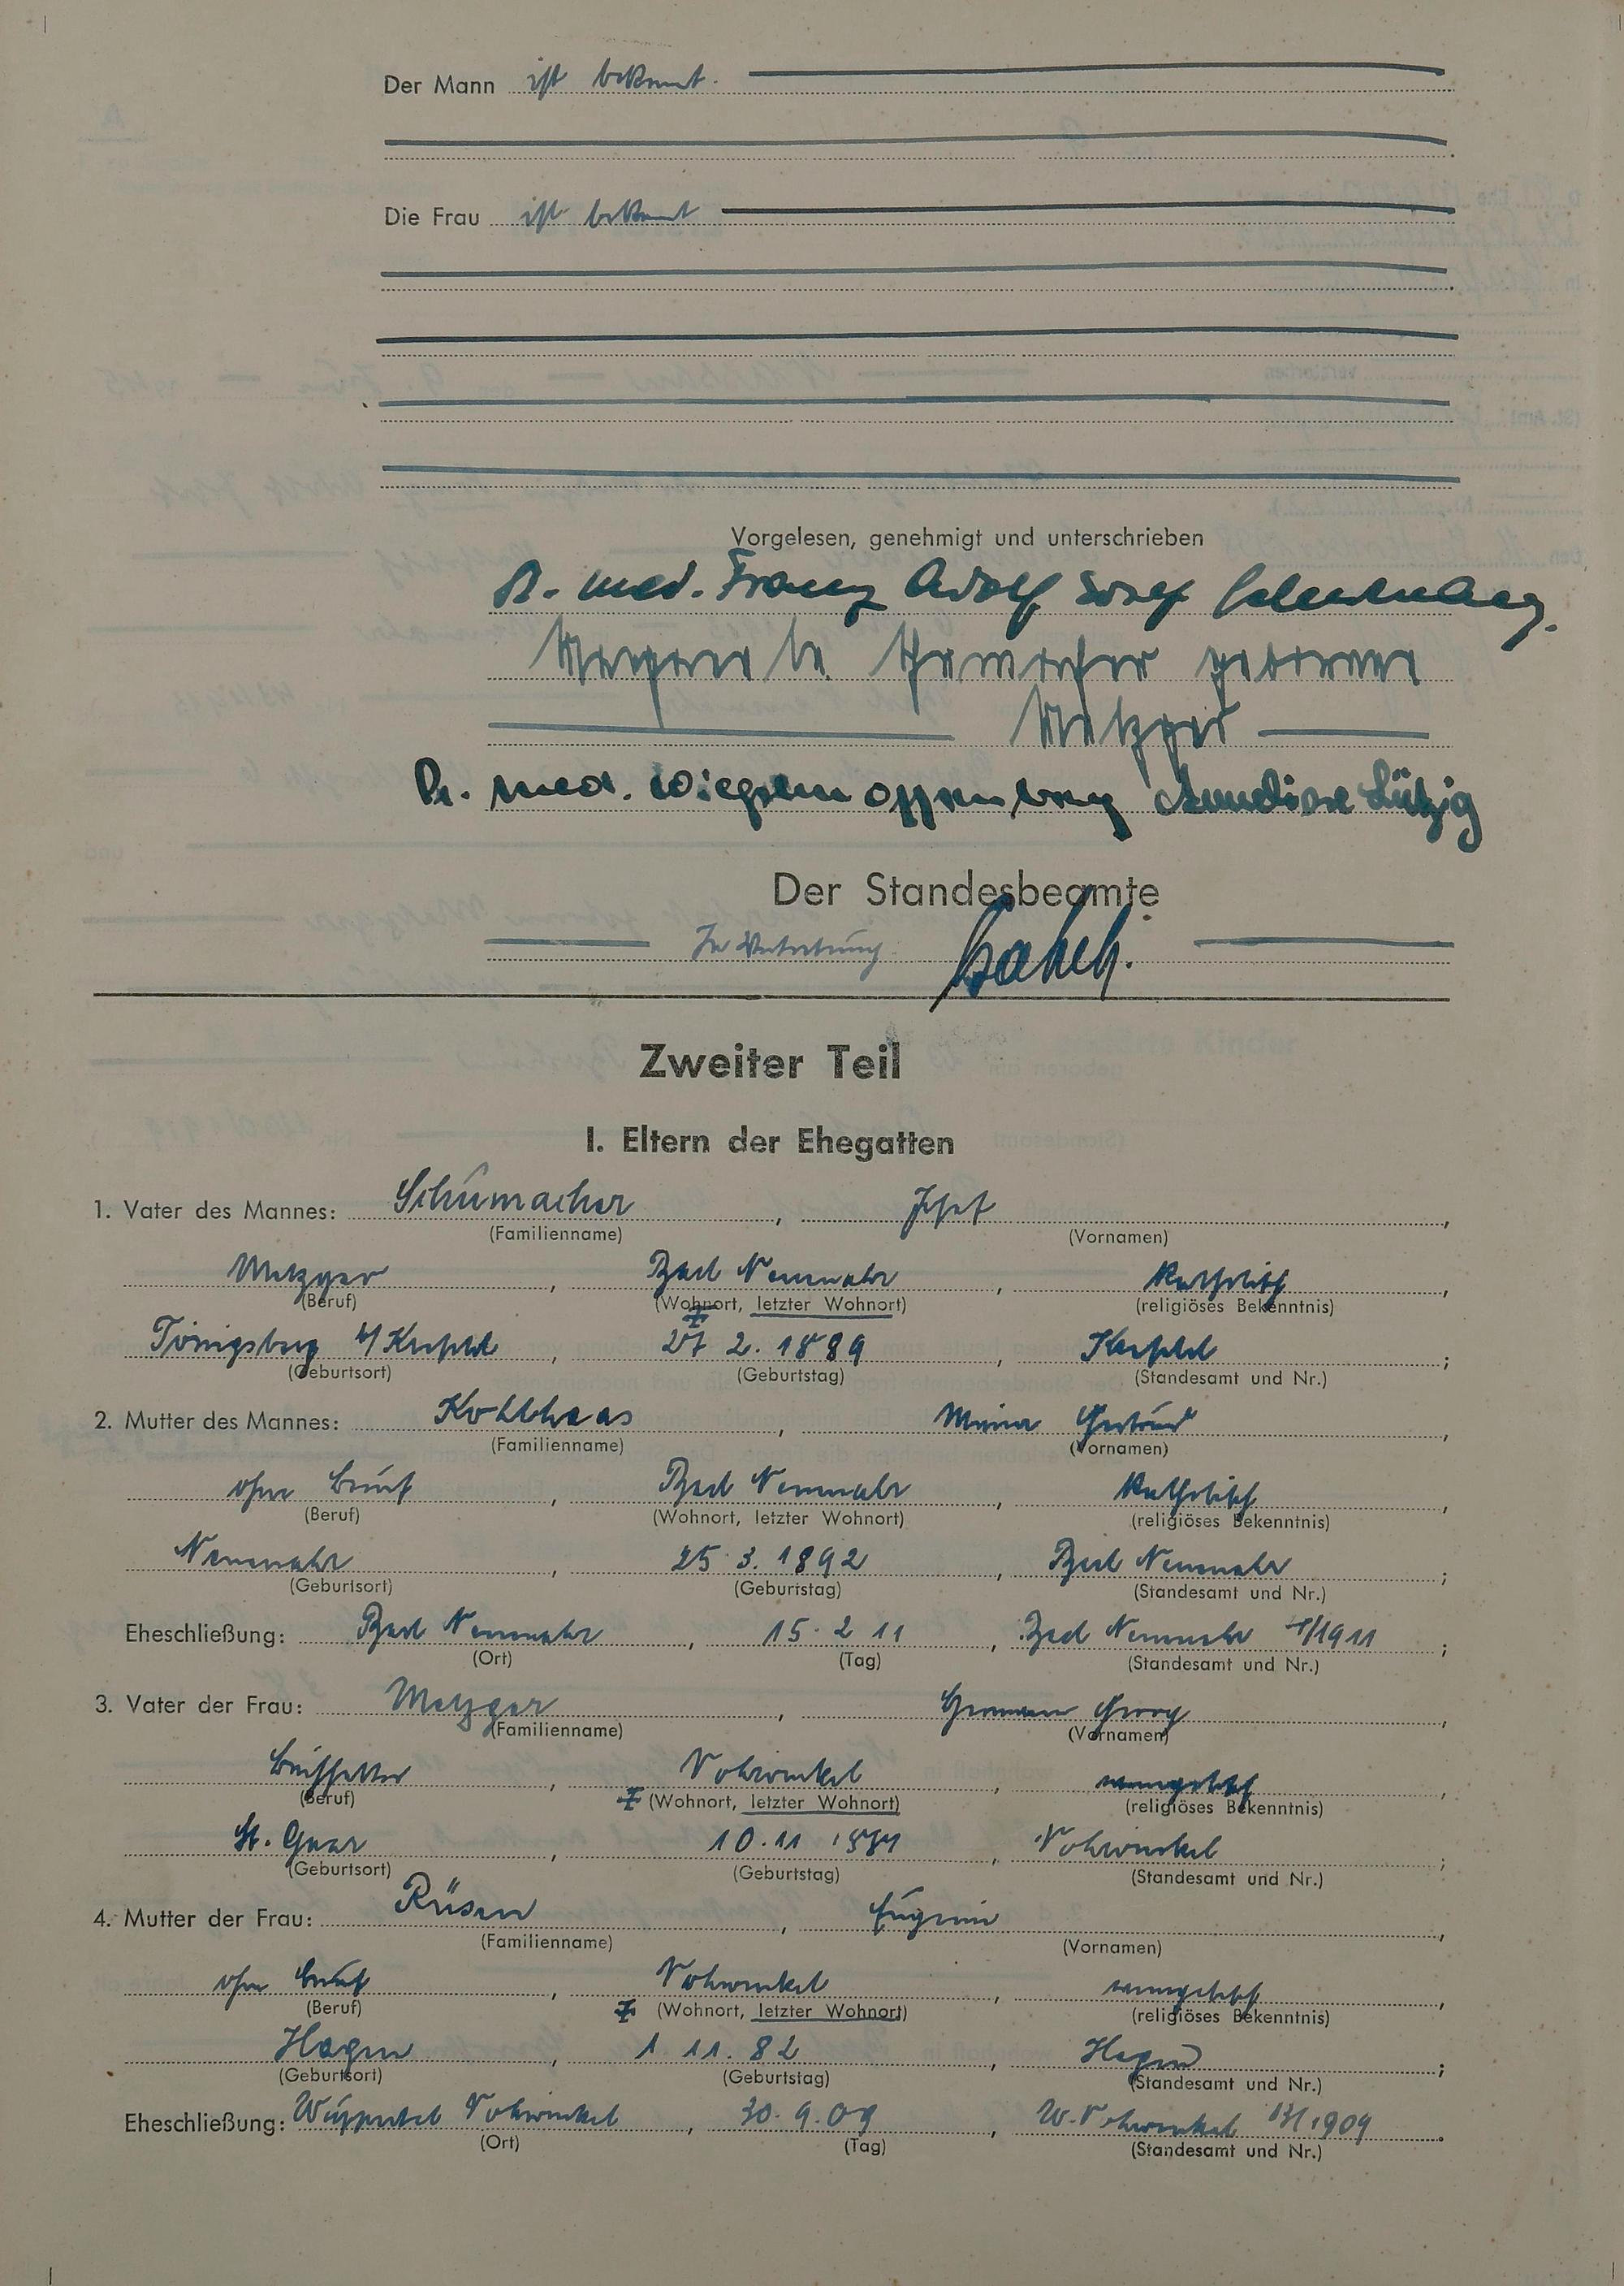 Der Mann ist bekannt.
Die Frau ist bekannt
Vorgelesen, genehmigt und unterschrieben
Dr. med. Franz Adolf Josef
geborene
Metzger
Dr. med. Anneliese
Der Standesbeamte
In Vertretung
Zweiter Teil
I. Eltern der Ehegatten
1. Vater des Mannes: Schumacher, Josef,
(Familienname) (Vornamen)
Metzger, Bad Neuenahr, katholisch,
(Beruf) (Wohnort, letzter Wohnort) (religiöses Bekenntnis)
Krefeld, 27 2. 1889, Krefeld;
(Geburtsort) (Geburtstag) (Standesamt und Nr.)
2. Mutter des Mannes: Kohlhaas, Maria Gertrud,
(Familienname) (Vornamen)
ohne Beruf, Bad Neuenahr, katholisch,
(Beruf) (Wohnort, letzter Wohnort) (religiöses Bekenntnis)
Neuenahr, 25. 3. 1892, Bad Neuenahr;
(Geburtsort) (Geburtstag) (Standesamt und Nr.)
Eheschließung: Bad Neuenahr, 15. 2 11, Bad Neuenahr /1911;
(Ort) (Tag) (Standesamt und Nr.)
3. Vater der Frau: Metzger, Georg,
(Familienname) (Vornamen)
Vohwinkel, evangelisch,
(Beruf) (Wohnort, letzter Wohnort) (religiöses Bekenntnis)
St. Goar, 10. 11, Vohwinkel;
(Geburtsort) (Geburtstag) (Standesamt und Nr.)
4. Mutter der Frau: Rüsen, Eugenie,
(Familienname) (Vornamen)
ohne Beruf, Vohwinkel, evangelisch,
(Beruf) (Wohnort, letzter Wohnort) (religiöses Bekenntnis)
Hagen, 1. 11. 82, Hagen;
(Geburtsort) (Geburtstag) (Standesamt und Nr.)
Eheschließung: Wuppertal Vohwinkel, 30. 9. 09, W. Vohwinkel /1909.
(Ort) (Tag) (Standesamt und Nr.)